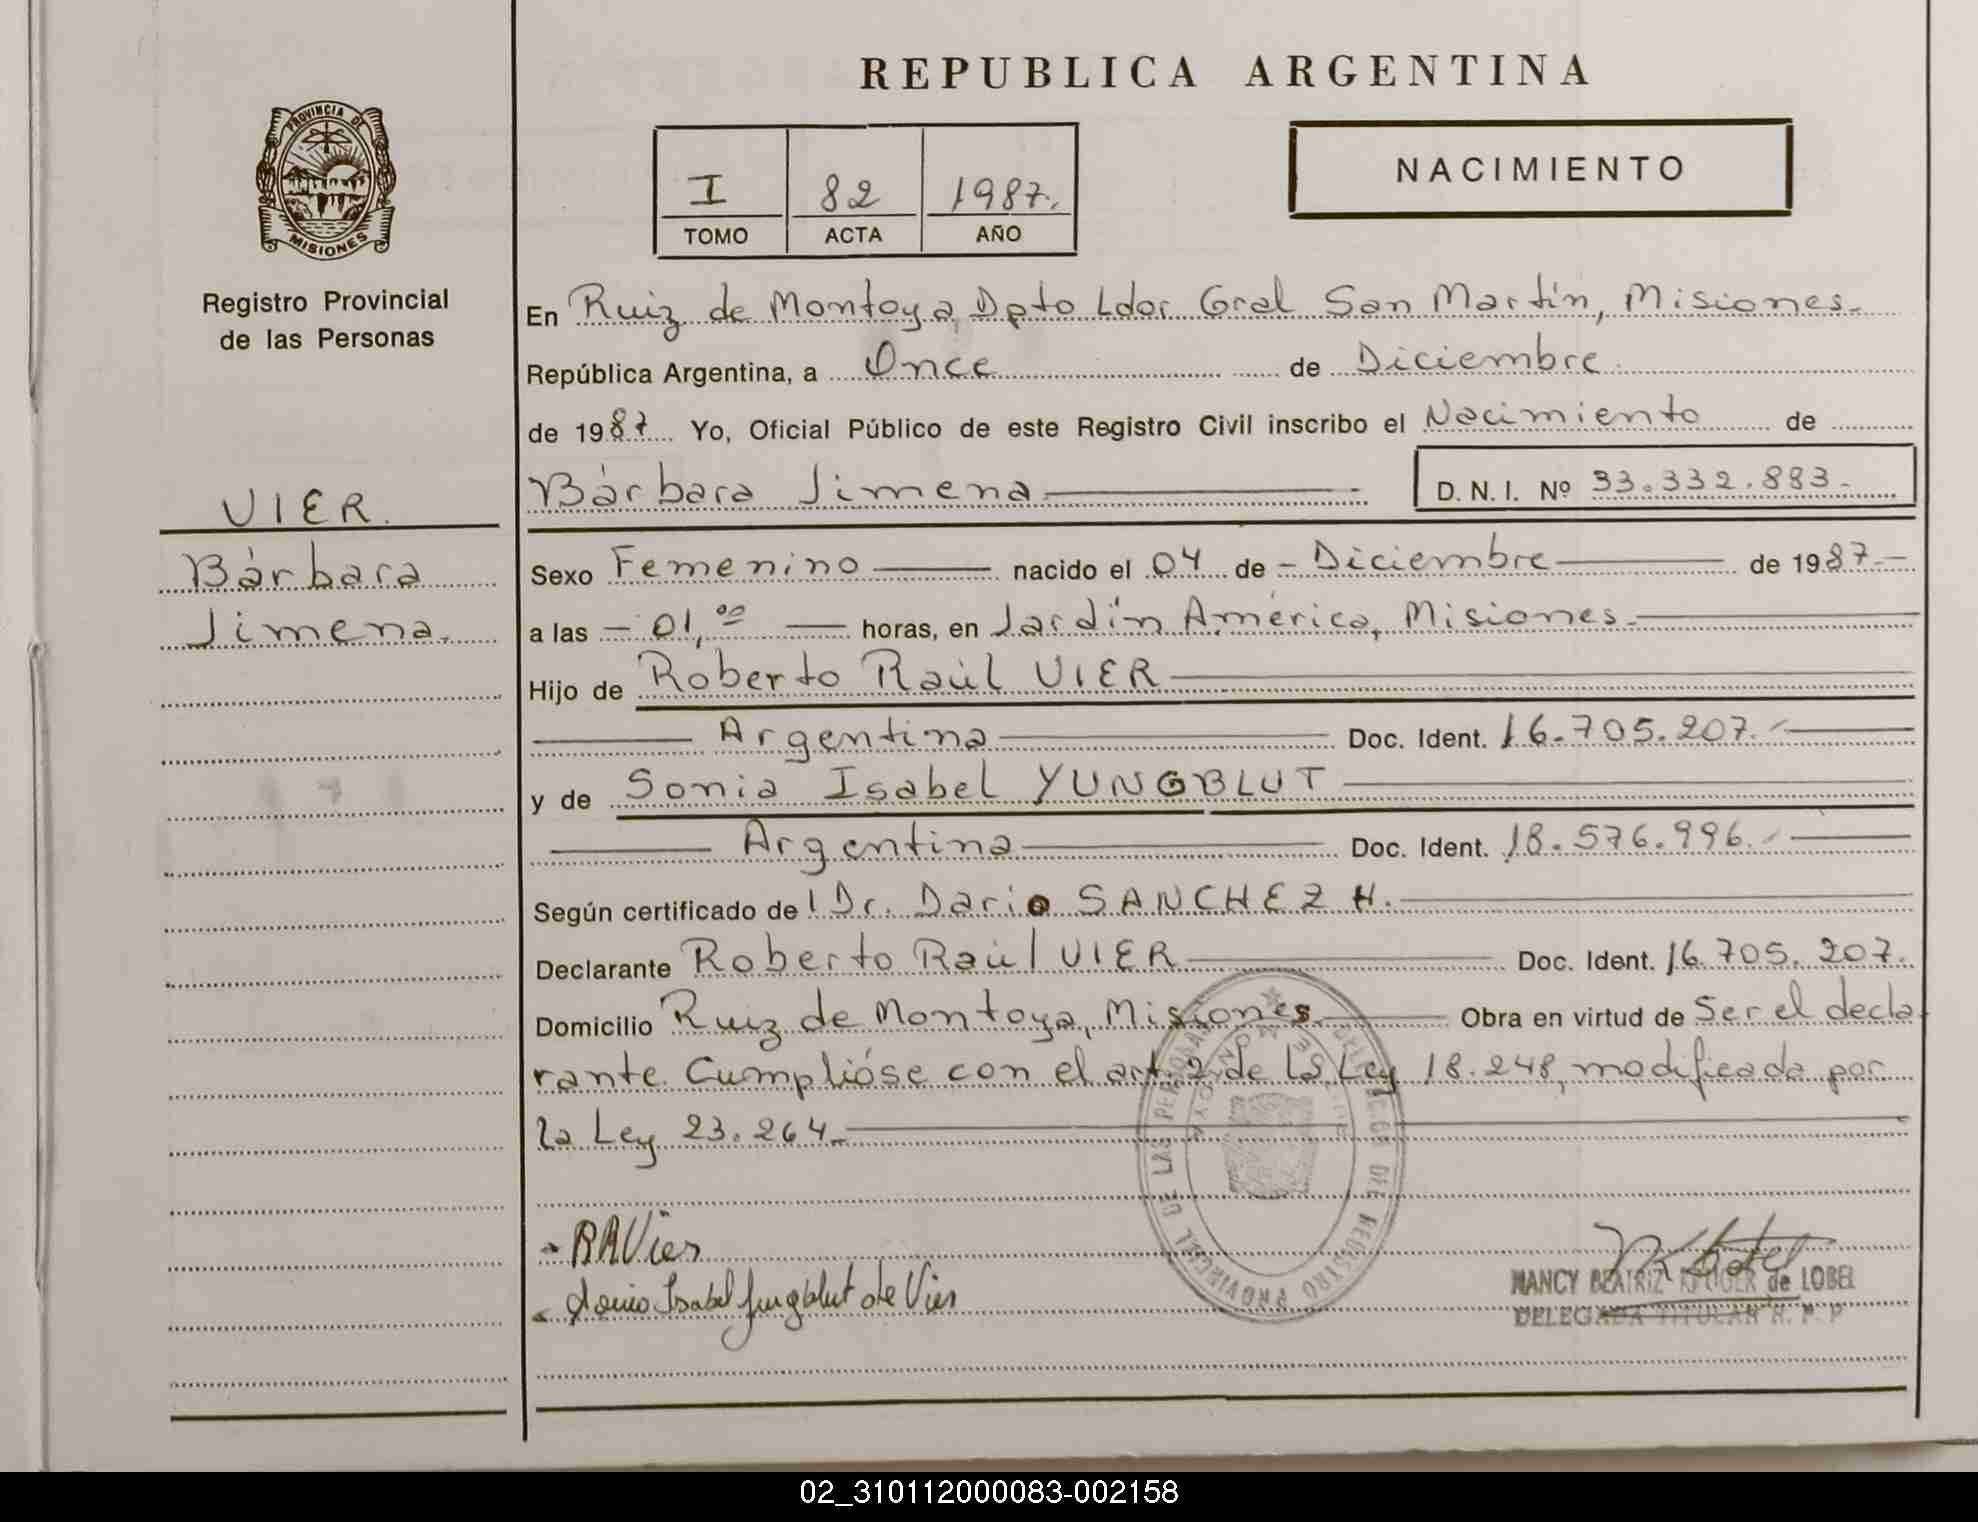 REPUBLICA ARGENTINA
PROVINCIA DE
MISIONES
Registro Provincial
de las Personas
I 82 1987.
TOMO ACTA AÑO
NACIMIENTO
En Ruiz de Montoya, Dpto Ldor. Gral San Martín, Misiones.
República Argentina, a Once de Diciembre
de 1987 Yo, Oficial Público de este Registro Civil inscribo el Nacimiento de
Bárbara Jimena
D. N. I. Nº 33.332.883.-
VIER.
Bárbara
Jimena.
Sexo Femenino nacido el 04 de - Diciembre de 1987-
a las - 01,00 horas, en Jardín América, Misiones.
Hijo de Roberto Raúl VIER
Argentina Doc. Ident. 16.705.207.-
y de Sonia Isabel YUNGBLUT
Argentina Doc. Ident. 18.576.996.-
Según certificado de Dr. Dario SANCHEZ H.
Declarante Roberto Raúl VIER Doc. Ident. 16.705.207.
Domicilio Ruiz de Montoya, Misiones. Obra en virtud de Ser el decla
rante. Cumplióse con el art. 2 de la Ley 18.248, modificada por
la Ley 23.264.
DELEGACION DEL REGISTRO PROVINCIAL DE LAS PERSONAS
- RAVier
- Sonia Isabel Jungblut de Vier
NANCY BEATRIZ KRUGER de LOBEL
DELEGADA TITULAR R. P. P
02_310112000083-002158